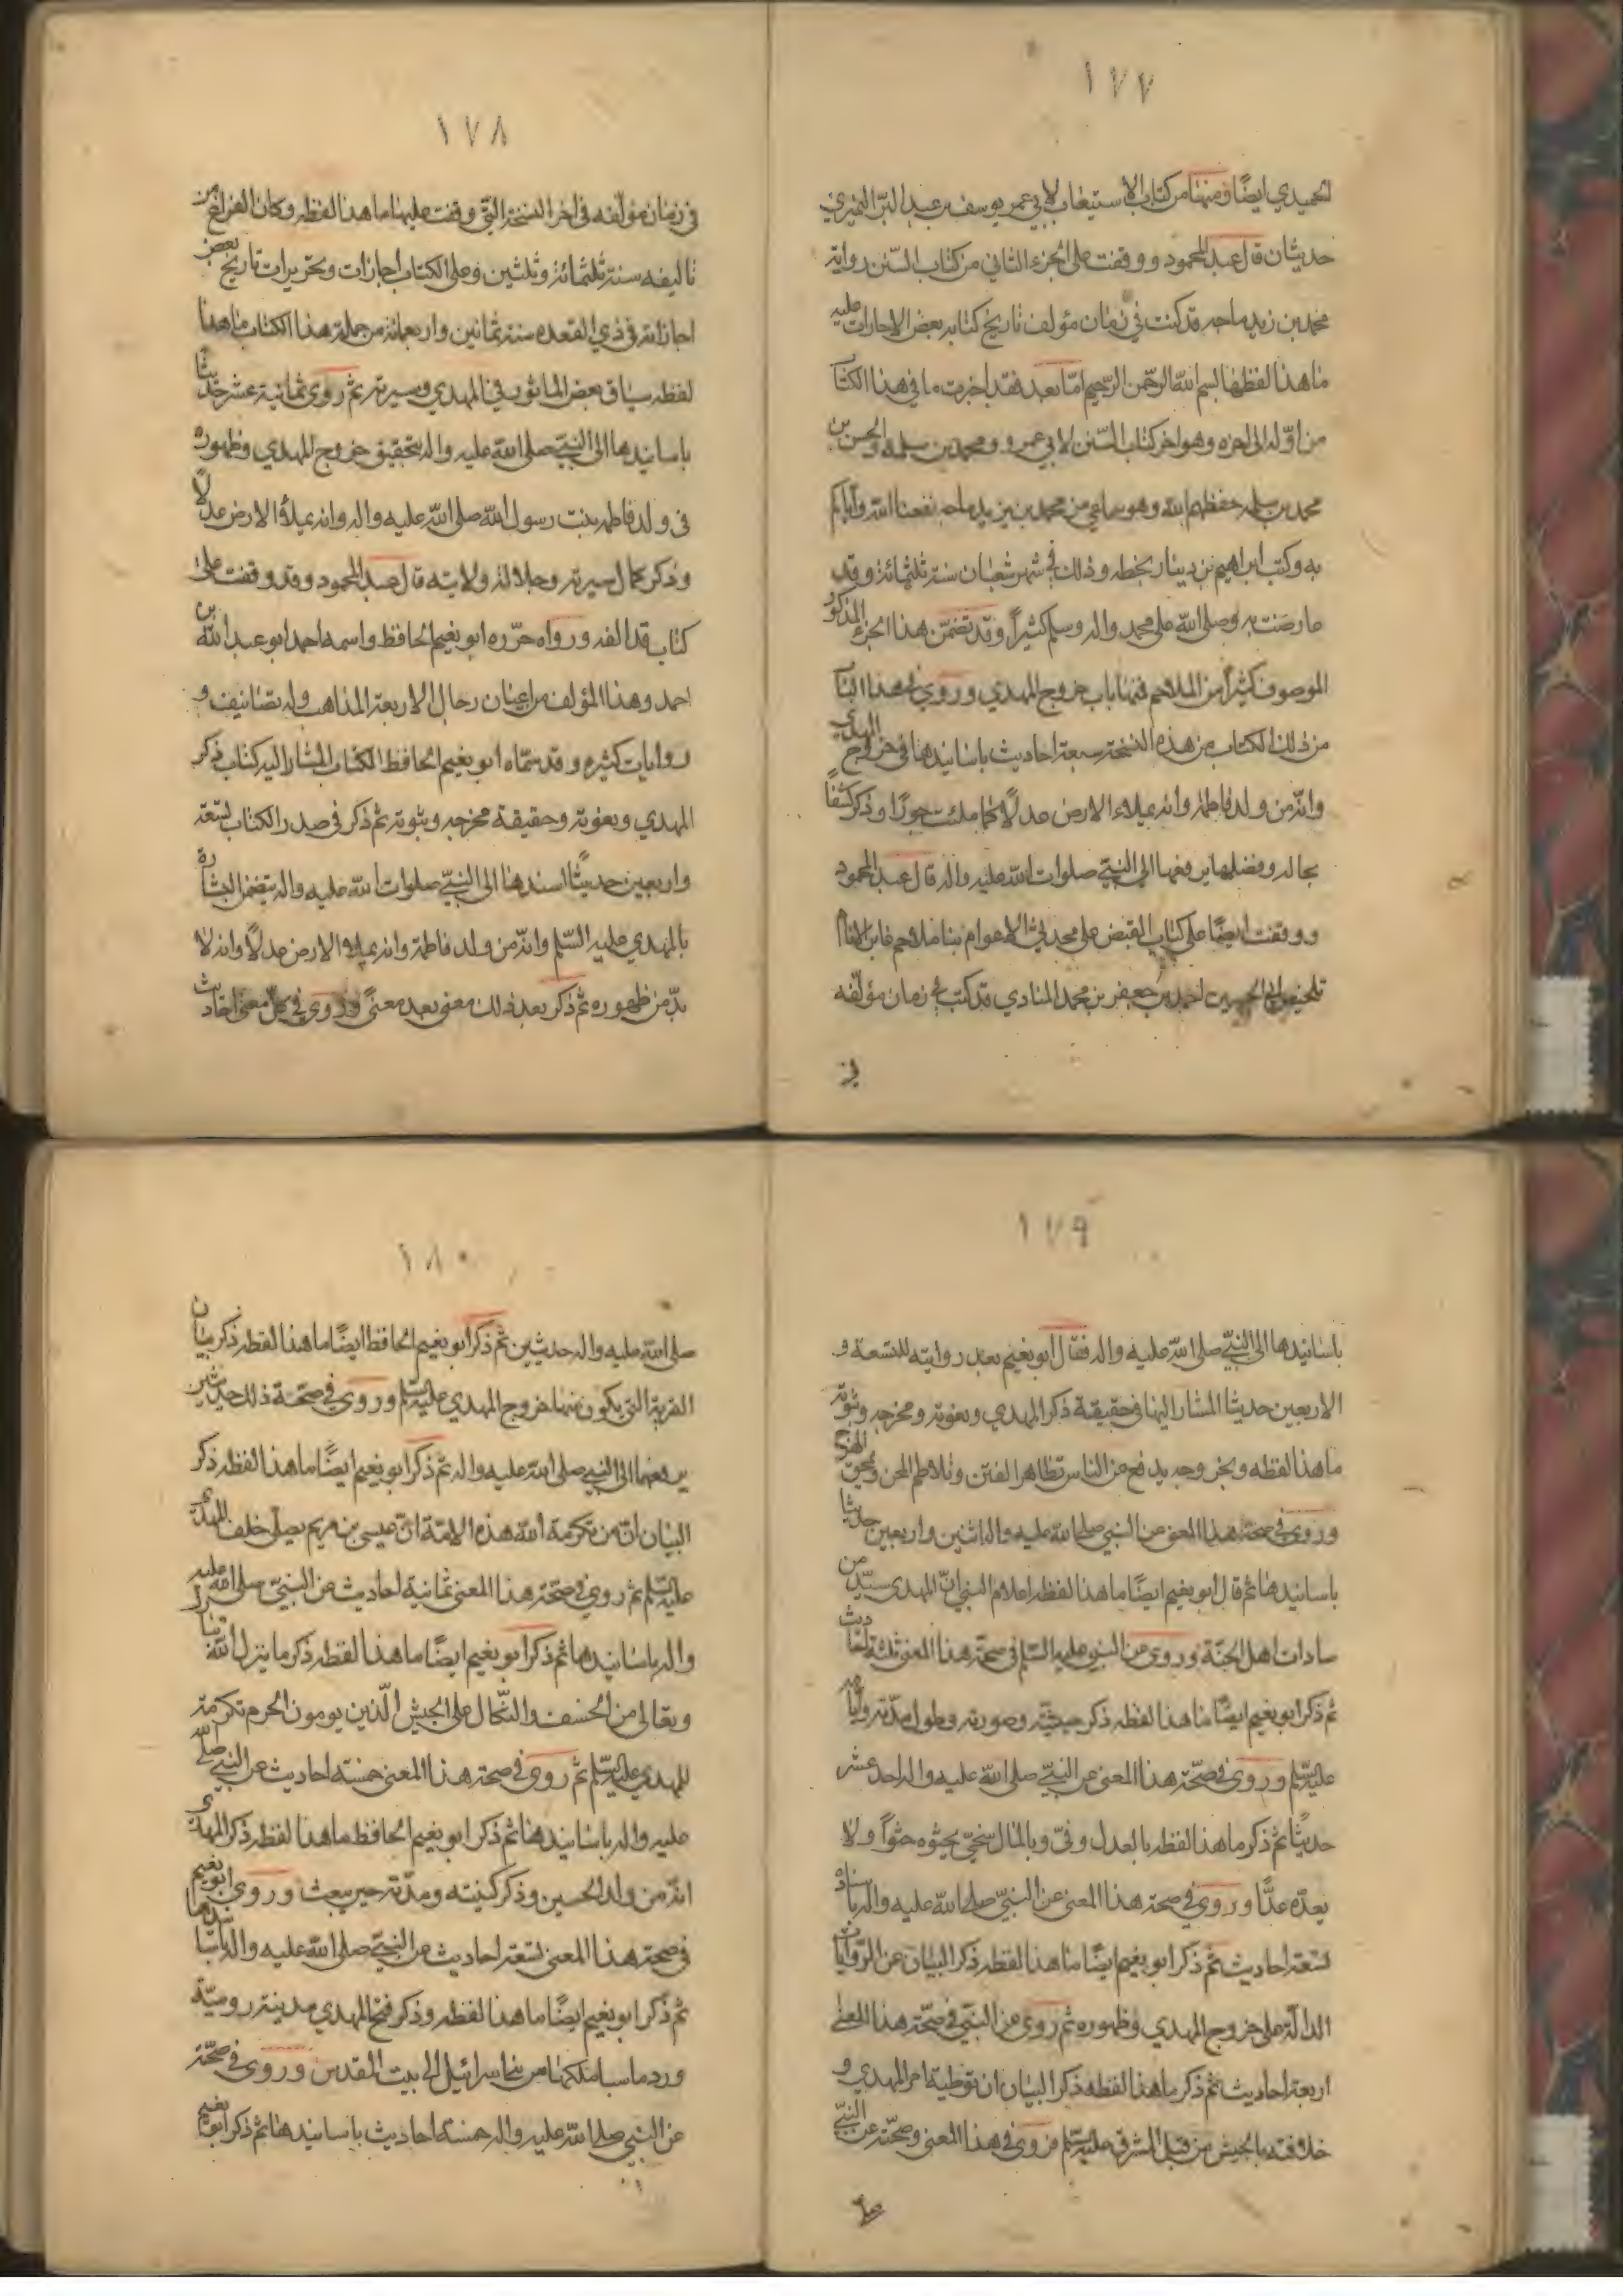 ١٧٧
الحميدي ايضًا ومنها من كتاب الاستيعاب لابي عمر يوسف بن عبد البرّ النميري
حديثان قال عبد المحمود ووقفت على الجزء الثاني من كتاب السّنن رواية
محمد بن زيد ماجه قد كتب في زمان مؤلف تاريخ كتابه بعض الاجازات عليه
ما هذا لفظها بسم الله الرحمن الرحيم امّا بعد فقد اجزت ما في هذا الكتاب
من اوّله الى اخره وهو اخر كتاب السّنن لابي عمرو ومحمد بن سلمه والحسن بن
محمد بن سلمه حفظهم الله وهو سماعي من محمد بن يزيد ماجه نفعنا الله واياكم
به وكتب ابراهيم بن دينار بخطه وذلك في شهر شعبان سنة ثلثمائة وقد
عارضت به وصلى الله على محمد واله وسلم كثيراً وقد تضمّن هذا الجزء المذكور
الموصوف كثيراً من الملاحم فمنها باب خروج المهدي وروى في هذا الباب
من ذلك الكتاب من هذه النسخة سبعة احاديث باسانيدها في خروج المهدي
وانّه من ولد فاطمة وانه يملاء الارض عدلًا كما ملئت جورًا وذكر كشفًا
بحاله وفضلها يرفعها الى النبيّ صلوات الله عليه واله قال عبد المحمود
ووقفت ايضًا على كتاب المقتص على محدث الاعوام بنبا ملاحم غابر الايام
تلخيص ابي الحسين احمد بن جعفر بن محمد المنادي قد كتب في زمان مؤلّفه
في
١٧٨
في زمان مؤلّفه في اخر النسخة التي وقفت عليها ما هذا لفظه وكان الفراغ من
تاليفه سنة ثلثمائة وثلثين وعلى الكتاب اجازات وتحريرات تاريخ بعض
اجازاته في ذي القعده سنة ثمانين واربعمائة من جملة هذا الكتاب ما هذا
لفظه سياق بعض الماثور في المهدي وسيرته ثم روى ثمانية عشر حديثًا
باسانيدها الى النبيّ صلى الله عليه واله بتحقيق خروج المهدي وظهوره
في ولد فاطمه بنت رسول الله صلى الله عليه واله وانه يملأ الارض عدلًا
وذكر كمال سيرته وجلالة ولايته قال عبد المحمود وقد وقفت على
كتاب قد الفه ورواه حرّره ابو نعيم الحافظ واسمه احمد ابو عبد الله بن
احمد وهذا المؤلف من اعيان رجال الاربعة المذاهب وله تصانيف و
روايات كثيره وقد سمّاه ابو نعيم الحافظ الكتاب المشار اليه كتاب ذكر
المهدي ونعوته وحقيقة مخرجه وثبوته ثم ذكر في صدر الكتاب تسعة
واربعين حديثًا اسندها الى النبيّ صلوات الله عليه واله يتضمّن البشارة
بالمهدي عليه السّلم وانّه من ولد فاطمة وانه يملاء الارض عدلًا وانه لا
بدّ من ظهوره ثم ذكر بعد ذلك معنى بعد معنًى وروى في كلّ معنى احاديث
١٧٩
باسانيدها الى النبيّ صلى الله عليه واله فقال ابو نعيم بعد روايته للتسعة و
الاربعين حديثا المشار اليها في حقيقة ذكر المهدي ونعوته ومخرجه وثبوته
ما هذا لفظه وبخروجه يدفع عن الناس تظاهر الفتن وتلاطم المحن ومحق الهرج
وروى في صحة هذا المعنى عن النبي صلى الله عليه واله اثنين واربعين حديثا
باسانيدها ثم قال ابو نعيم ايضًا ما هذا لفظه اعلام النبي انّ المهدي سيّد من
سادات اهل الجنّة وروى عن النبي عليه السّلم في صحّة هذا المعنى ثلثة احاديث
ثم ذكر ابو نعيم ايضًا ما هذا لفظه ذكر جيشه وصورته وطول مدّته وايامه
عليه السّلم وروى في صحّة هذا المعنى عن النبيّ صلى الله عليه واله احد عشر
حديثًا ثم ذكر ما هذا لفظه بالعدل وفىّ وبالمال سخيّ يحثوه حثوًا ولا
يعدّه عدًّا وروى في صحة هذا المعنى عن النبيّ صلى الله عليه واله باسناده
تسعة احاديث ثم ذكر ابو نعيم ايضًا ما هذا لفظه ذكر البيان عن الروايات
الدالة على خروج المهدي وظهوره ثم روى عن النبيّ في صحّة هذا المعنى
اربعة احاديث ثم ذكر ما هذا لفظه ذكر البيان ان توطية امر المهدي و
خلافته بالجيش من قبل المشرق عليه السّلم فروى في هذا المعنى وصحّته عن النبيّ
صلى
١٨٠
صلى الله عليه واله حديثين ثم ذكر ابو نعيم الحافظ ايضًا ما هذا لفظه ذكر بيان
القرية التي يكون منها خروج المهدي عليه السّلم وروى في صحّة ذلك حديثين
يرفعهما الى النبي صلى الله عليه واله ثم ذكر ابو نعيم ايضًا ما هذا لفظه ذكر
البيان انّ من تكرمة الله هذه الامّة انّ عيسى بن مريم يصلّي خلف المهدي
عليه السّلم ثم روى في صحّة هذا المعنى ثمانية احاديث عن النبيّ صلى الله عليه
واله باسانيدها ثم ذكر ابو نعيم ايضًا ما هذا لفظه ذكر ما ينزل الله
وتعالى من الخسف والنّكال على الجيش الّذين يومون الحرم تكرمة
للمهدي عليه السّلم ثم روى في صحة هذا المعنى خمسة احاديث عن النبيّ صلى الله
عليه واله باسانيدها ثم ذكر ابو نعيم الحافظ ما هذا لفظه ذكر المهدي
انّه من ولد الحسين وذكر كنيته ومدّته حين يبعث وروى ابو نعيم
في صحة هذا المعنى تسعة احاديث عن النبيّ صلى الله عليه واله باسانيدها
ثم ذكر ابو نعيم ايضًا ما هذا لفظه وذكر فتح المهدي مدينة روميّة
ورد ما سبا ملكها من بني اسرائيل الى بيت المقدس وروى في صحّة
عن النبي صلى الله عليه واله خمسة احاديث باسانيدها ثم ذكر ابو نعيم